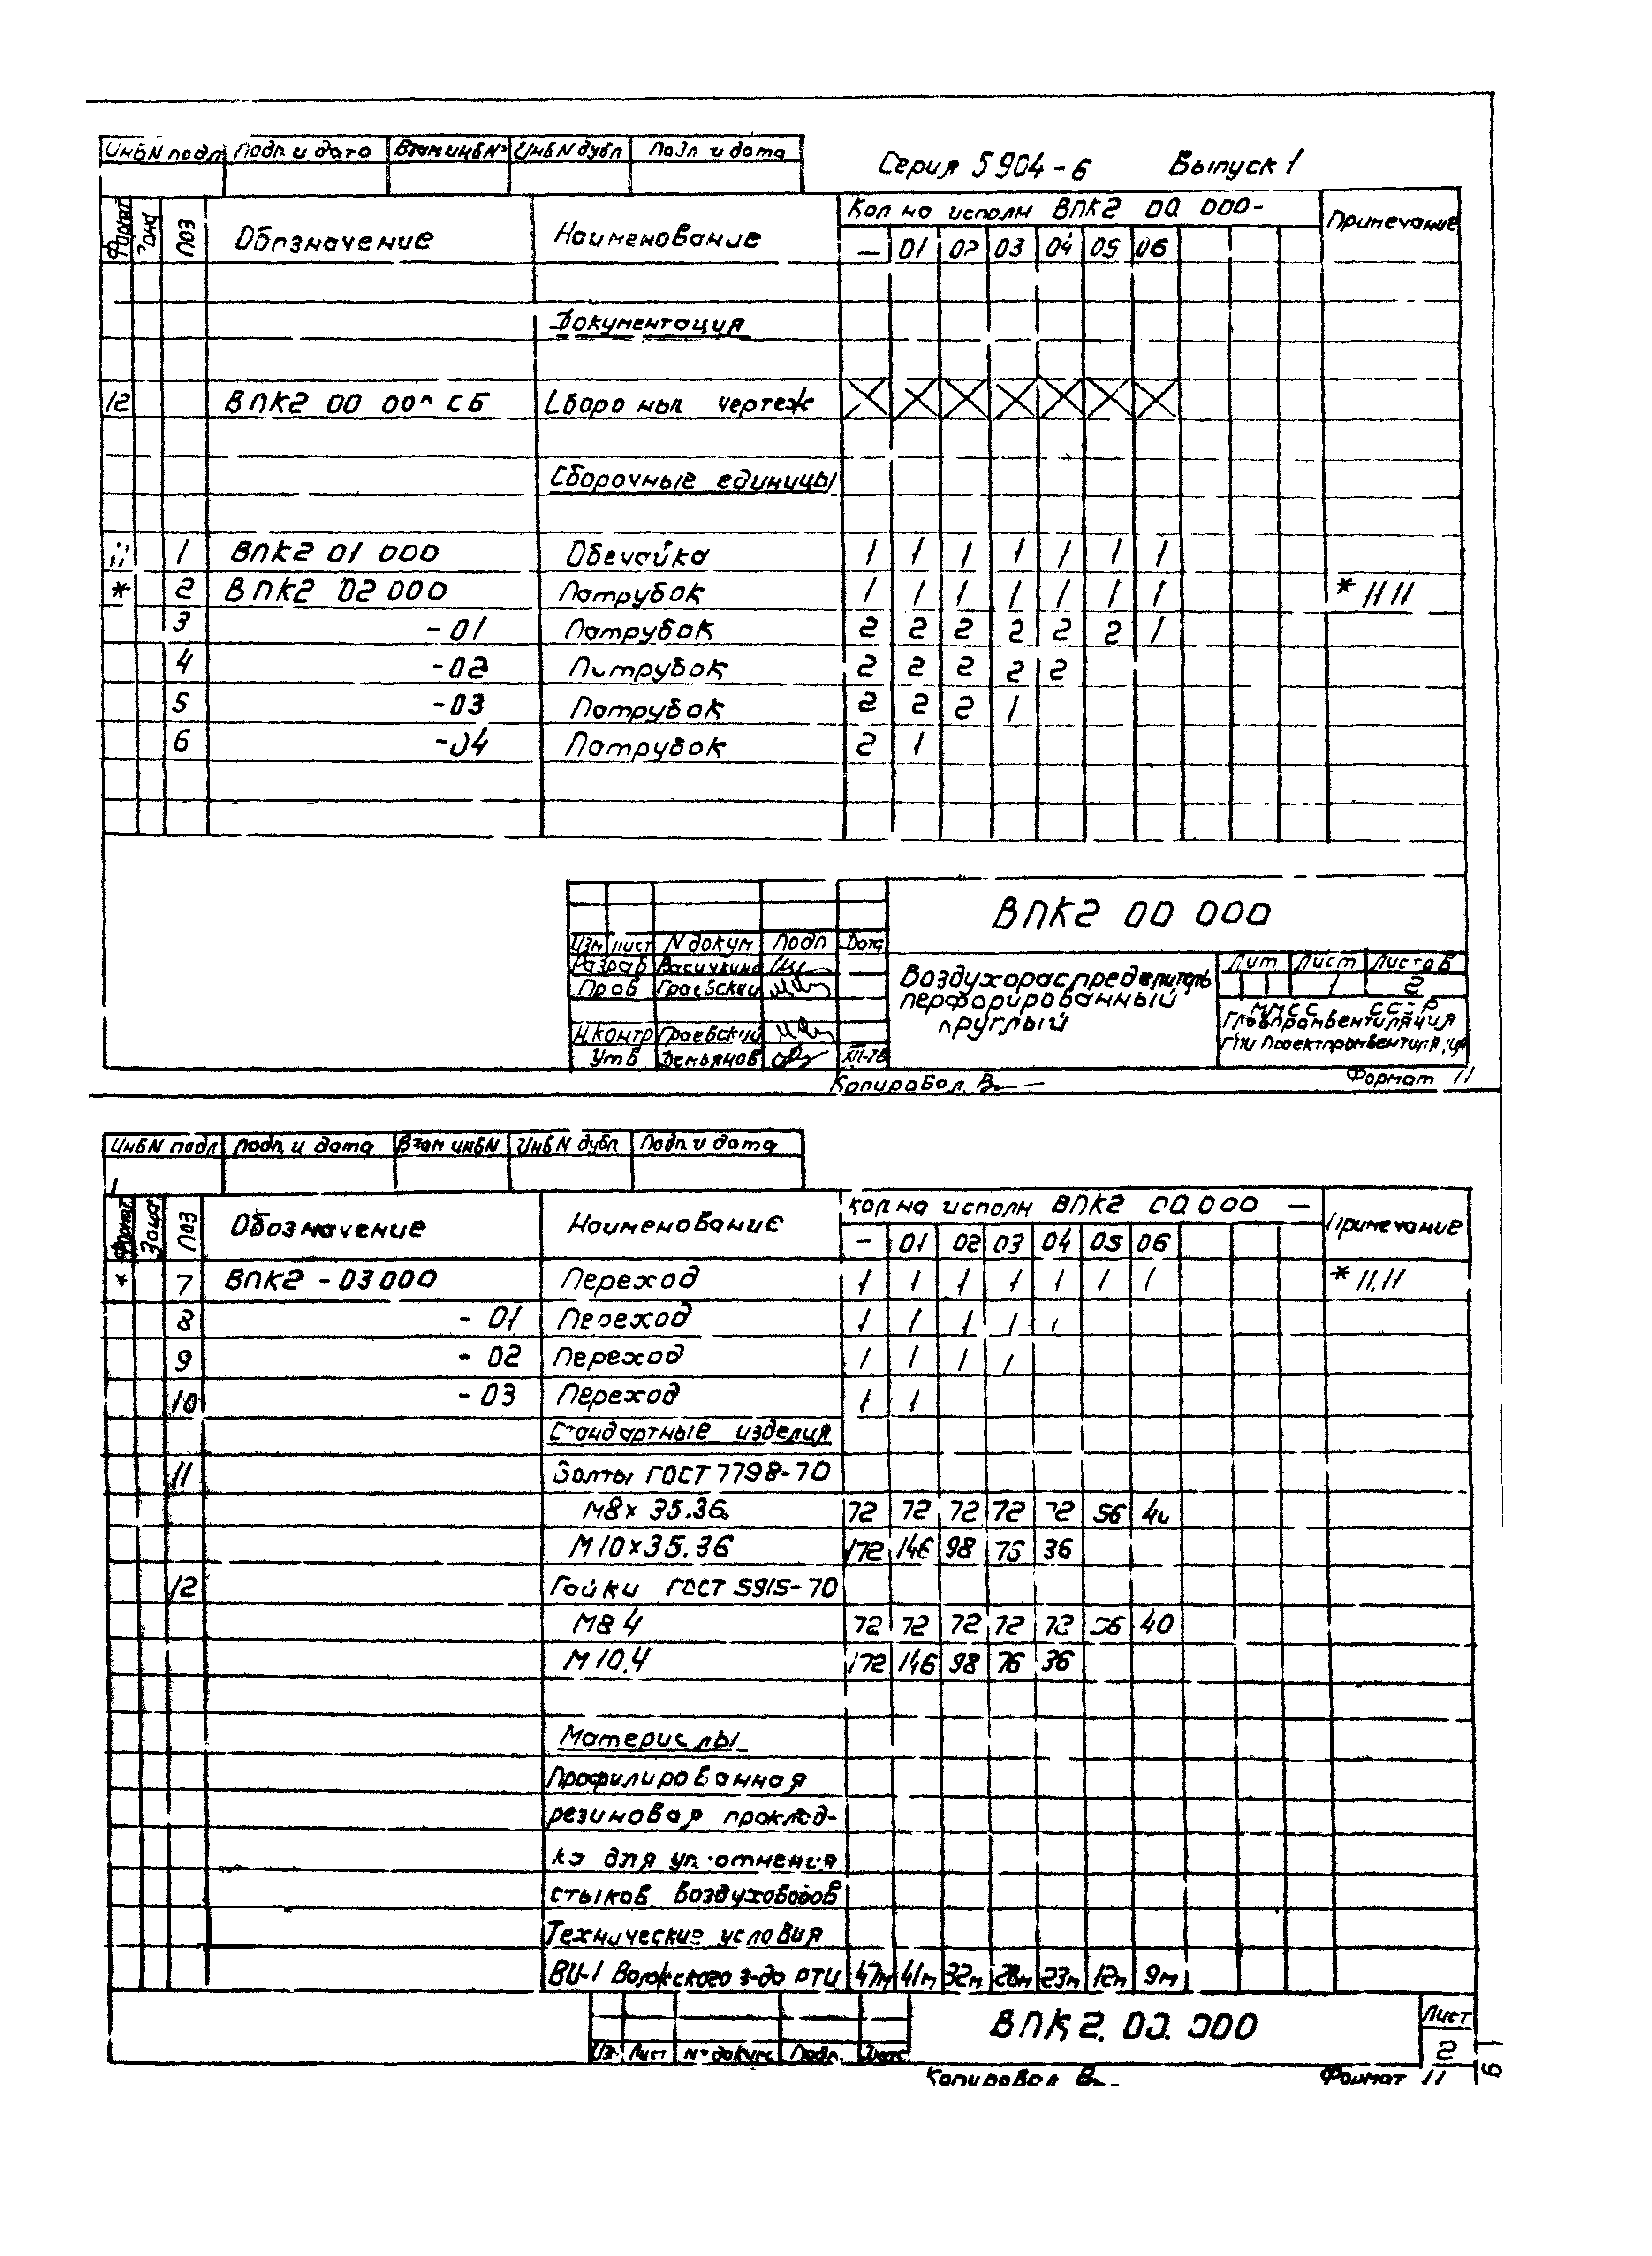 ИнвN подл Подп и дата Взам инвN° ИнвN дубл Подп и дата
Серия 5 904-6 Выпуск 1
Формат Зона Поз Обозначение Наименование Кол на исполн ВПК2 00 000- Примечание
— 01 02 03 04 05 06
Документация
12 ВПК2 00 000 СБ Сборочный чертеж
Сборочные единицы
11 1 ВПК2 01 000 Обечайка 1 1 1 1 1 1 1
* 2 ВПК2 02 000 Патрубок 1 1 1 1 1 1 1 * 11 11
3 -01 Патрубок 2 2 2 2 2 2 1
4 -02 Патрубок 2 2 2 2 2
5 -03 Патрубок 2 2 2 1
6 -04 Патрубок 2 1
ВПК2 00 000
Изм Лист N докум Подп Дата
Разраб Васичкина
Пров Граевский
Н.контр Граевский
Утв Демьянов XII-78
Воздухораспределитель
перфорированный
круглый
Лит Лист Листов
1 2
ММСС СССР
Главпромвентиляция
ГПИ Проектпромвентиляция
Копировал
Формат 11
ИнвN подл Подп. и дата Взам инвN ИнвN дубл Подп. и дата
Формат Зона Поз Обозначение Наименование Кол на исполн ВПК2 00.000 — Примечание
— 01 02 03 04 05 06
* 7 ВПК2 - 03 000 Переход 1 1 1 1 1 1 1 * 11.11
8 - 01 Переход 1 1 1 1 1
9 - 02 Переход 1 1 1 1
10 - 03 Переход 1 1
Стандартные изделия
11 Болты ГОСТ 7798-70
М8х 35.36. 72 72 72 72 72 56 40
М10х35.36 172 146 98 76 36
12 Гайки ГОСТ 5915-70
М8 4 72 72 72 72 72 56 40
М10.4 172 146 98 76 36
Материалы
Профилированная
резиновая проклад-
ка для уплотнения
стыков воздуховодов
Технические условия
ВИ-1 Волжского з-да РТИ 47м 41м 32м 28м 23м 12м 9м
ВПК2. 00. 000
Лист
2
Из. Лист N° докум. Подп. Дата
Копировал
Формат 11